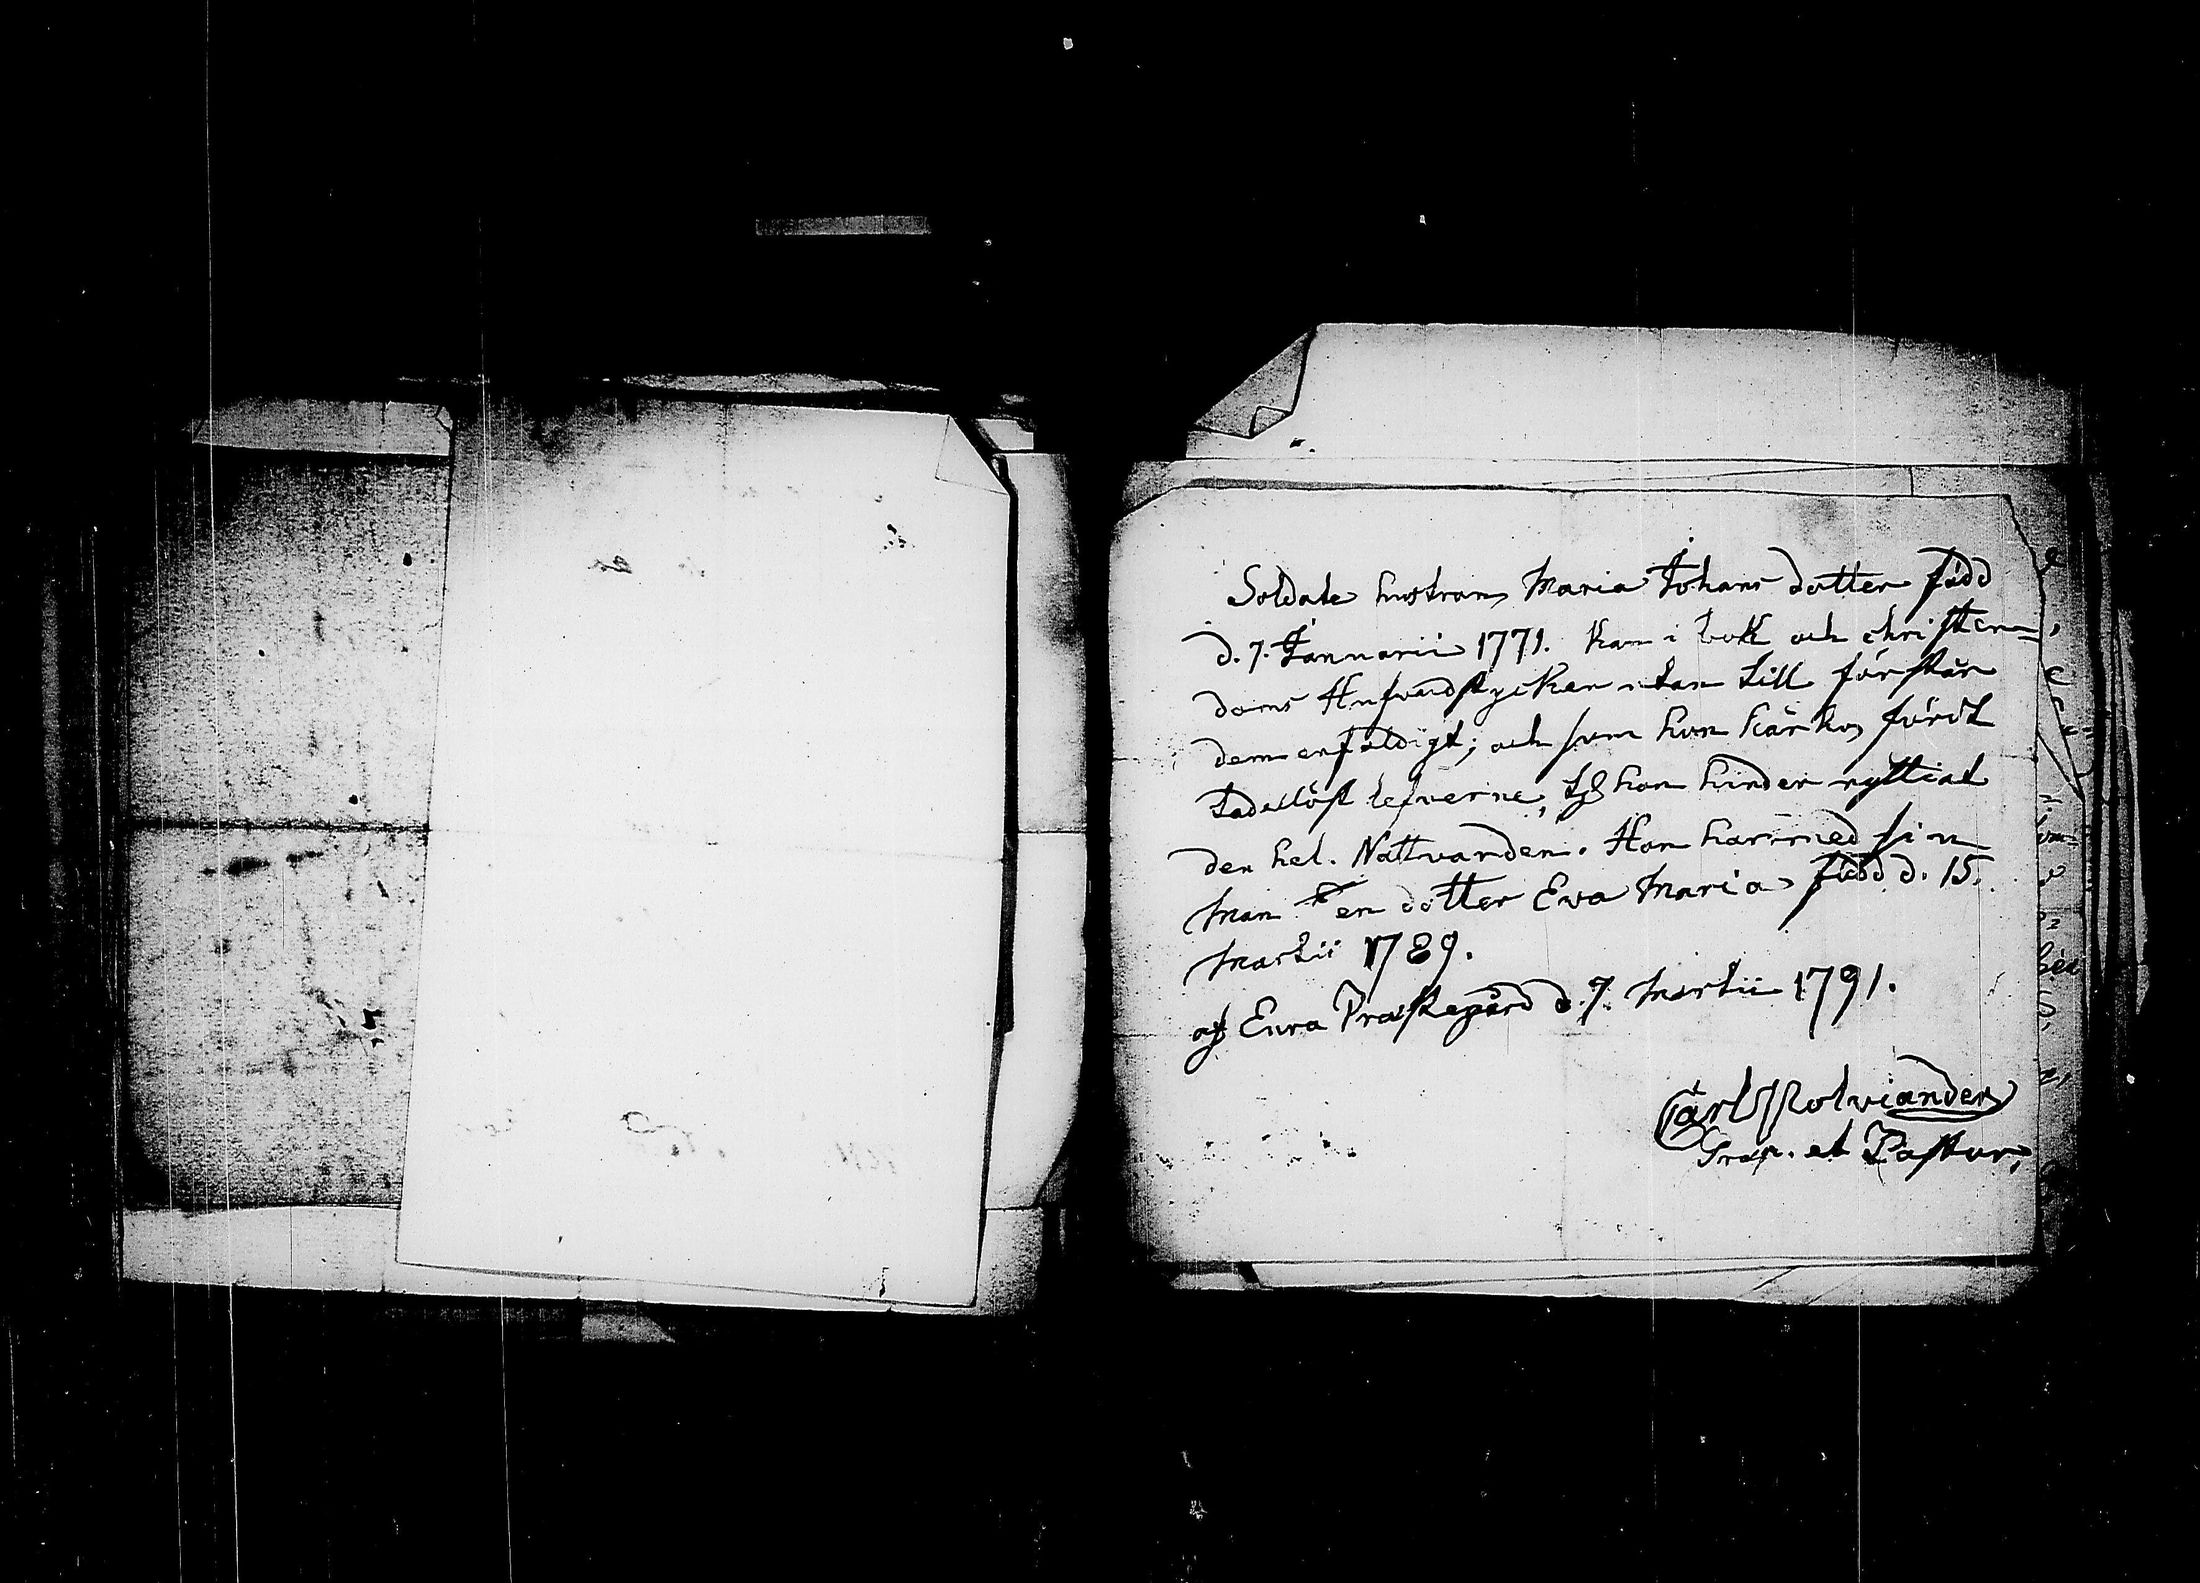 Soldate hustrun Maria Johans dotter född
d. 7. Januarii 1771. kan i bok och christen=
doms Hufvudstycken utan till förstår
dem enfaldigt; och som hon här fördt
tadellöst lefverne, hon hinder nyttiat
den hel. Nattvarden. Hon har med sin
man en dotter Eva Maria, född d. 15.
Martii 1789.
af Eura Prästegård d. 7. Martii 1791.
Carl Polviander
Præp. et Pastor,